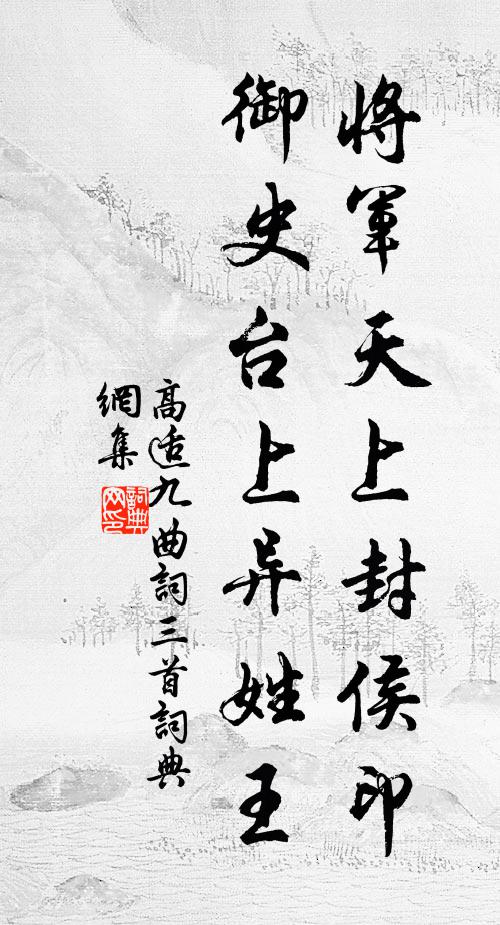 將軍天上封侯印
御史台上异姓王
高适九曲詞三首詞典
網集
詞典
网印